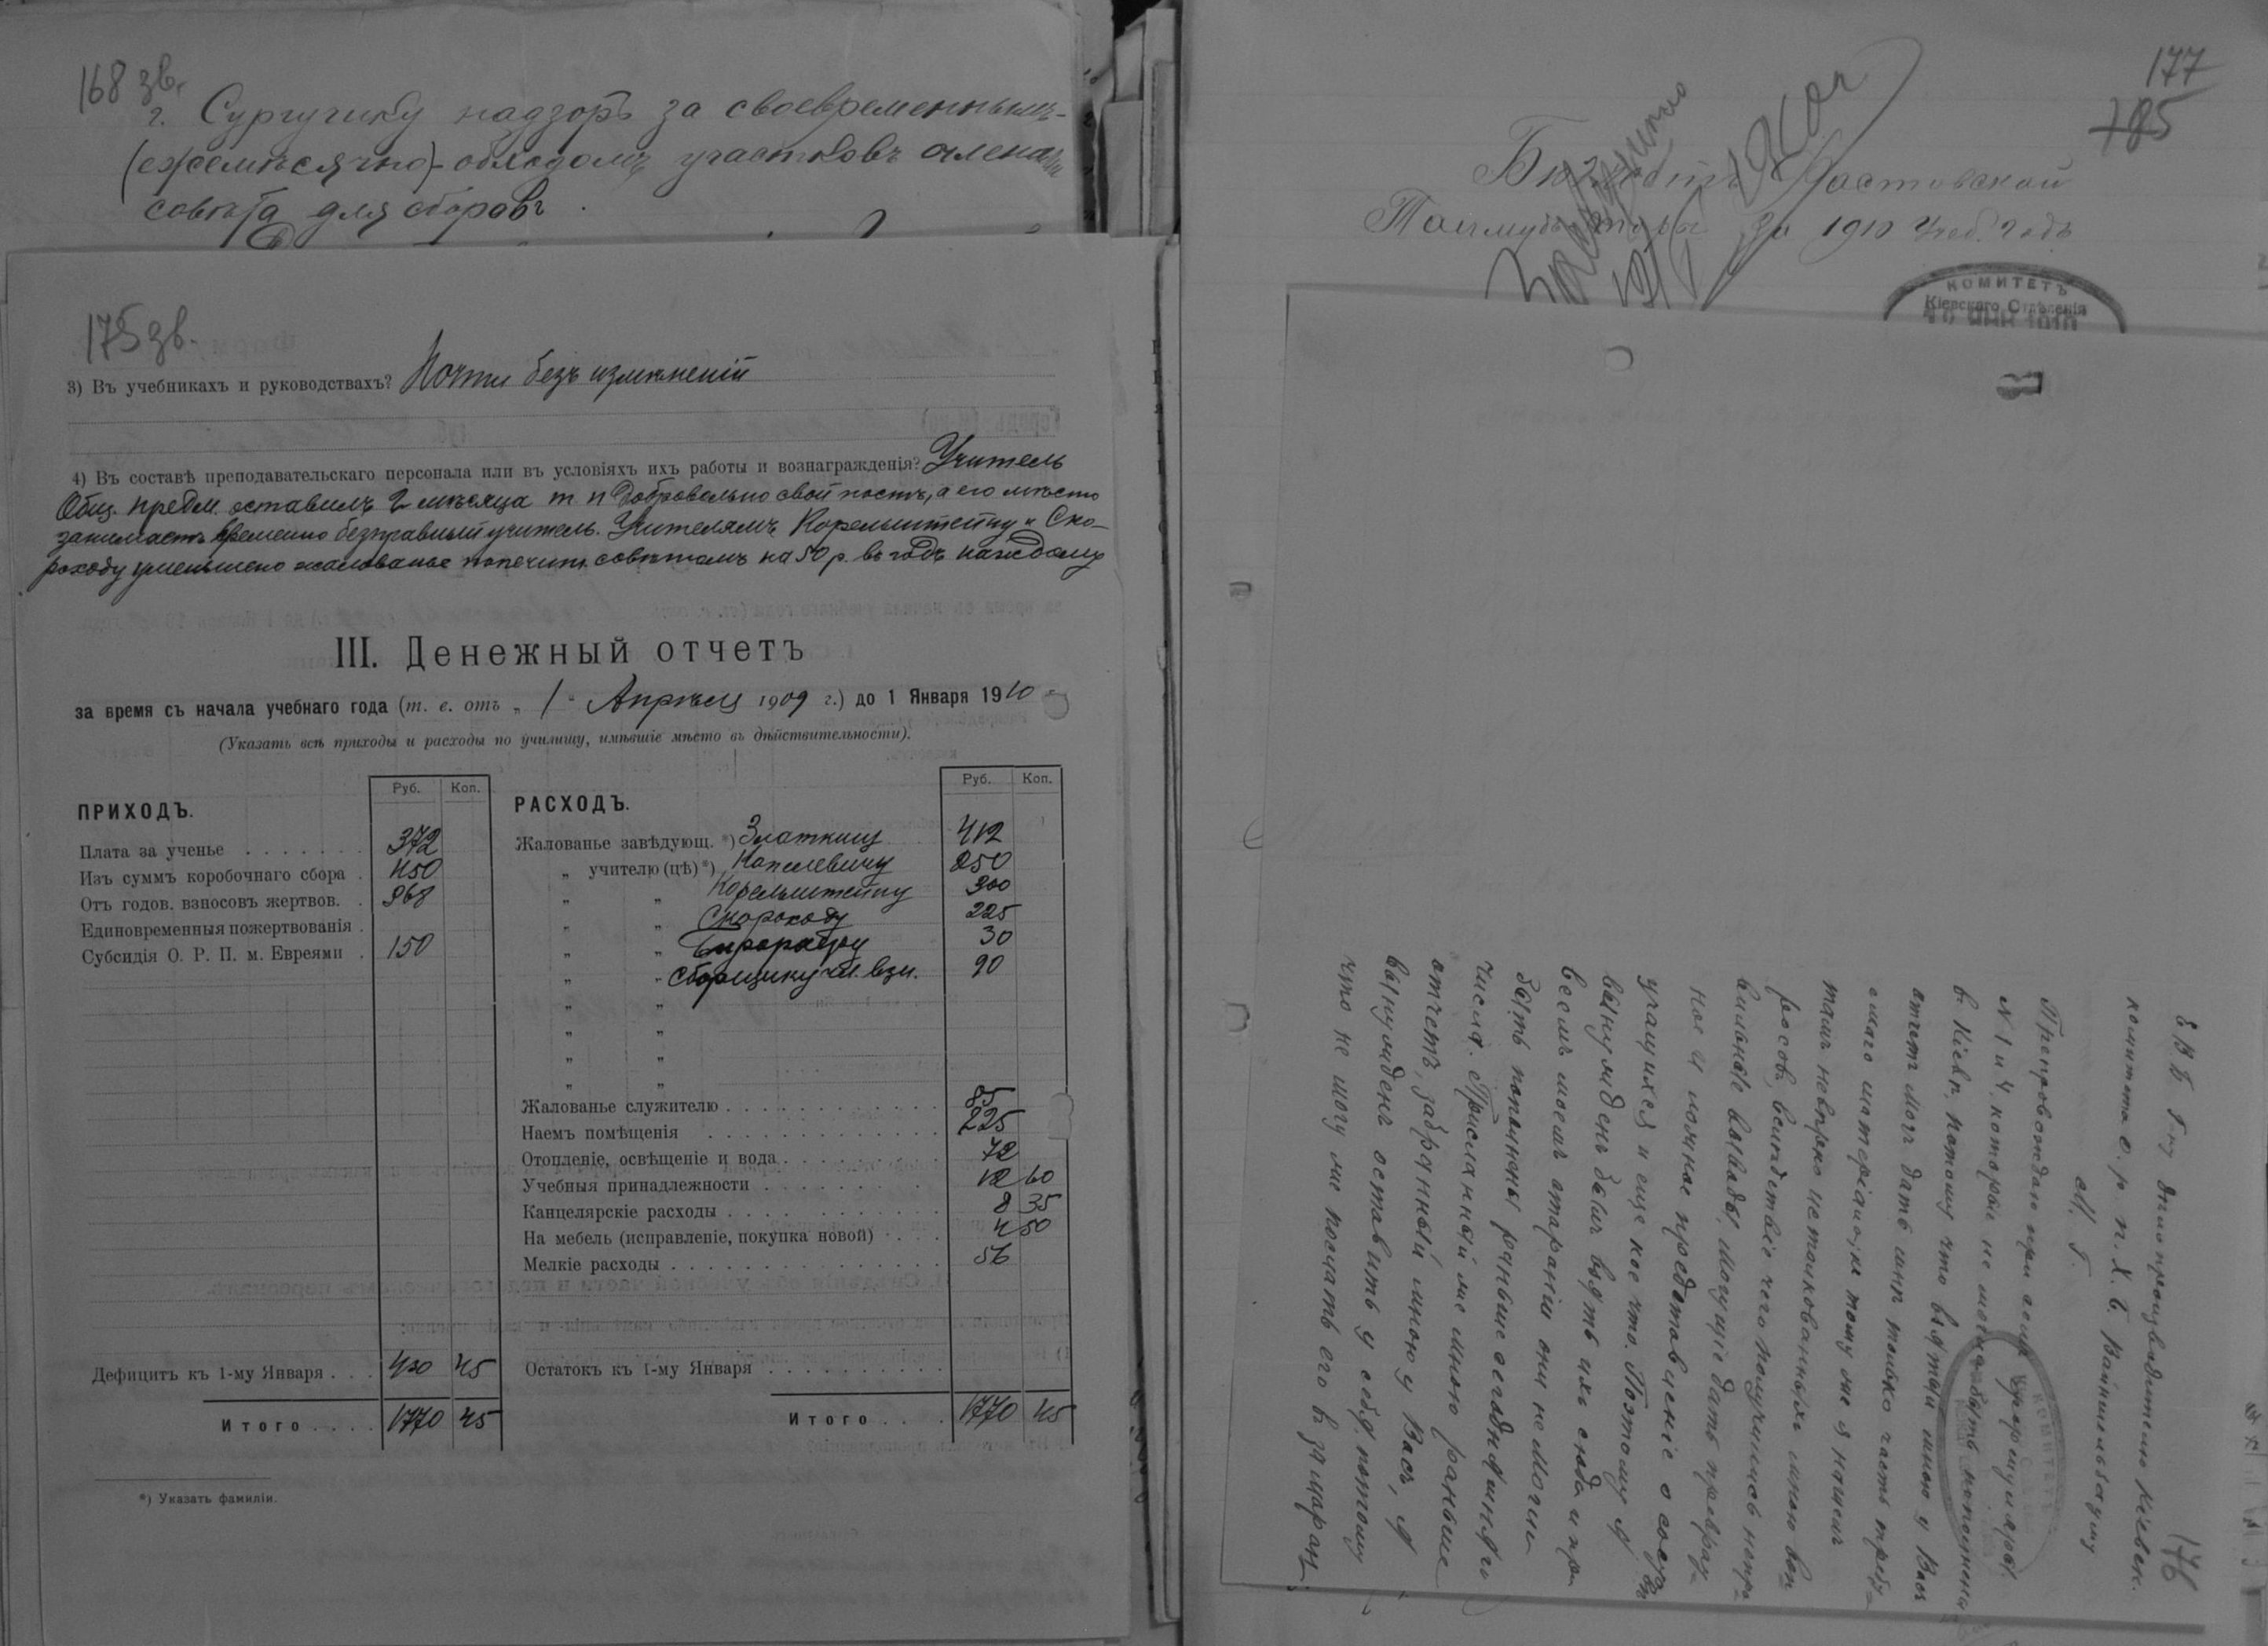 168 зв.
г. Сургучику надзоръ за своевременнымъ-
(ежемѣсячно)-обходомъ участковъ членами
совѣта для сборовъ.
175 зв.
3) Въ учебникахъ и руководствахъ? Почти безъ измѣненій
4) Въ составѣ преподавательскаго персонала или въ условіяхъ ихъ работы и вознагражденія? Учитель
Общ. предм. оставилъ 2 мѣсяца т. н добровольно свой постъ, а его мѣсто
занимаетъ временно безправный учитель. Учителямъ Корельштейну и Ско-
роходу уменьшено жалованье попечит. совѣтомъ на 50 р. въ годъ каждому
III. Денежный отчетъ
за время съ начала учебнаго года (т. е. отъ „ 1 " Апрѣля 1909 г.) до 1 Января 1910
(Указать всѣ приходы и расходы по училищу, имѣвшіе мѣсто въ дѣйствительности).
ПРИХОДЪ. Руб. Коп.
Плата за ученье . . . . . . . 372
Изъ суммъ коробочнаго сбора . 450
Отъ годов. взносовъ жертвов. . 368
Единовременныя пожертвованія .
Субсидія О. Р. П. м. Евреями . 150
Дефицитъ къ 1-му Января . . . 430 45
Итого . . . . 1770 45
РАСХОДЪ. Руб. Коп.
Жалованье завѣдующ. *) Златкину 412
„ учителю (цѣ) *) Капелевичу 250
„ „ Корельштейну 300
„ „ Скороходу 225
„ „ 30
„ „ Сборщику чл. взн. 90
„ „
„ „
„ „
„ „
Жалованье служителю . . . . . . . . . . . . 85
Наемъ помѣщенія . . . . . . . . . . . . . 225
Отопленіе, освѣщеніе и вода . . . . . . . . . 72
Учебныя принадлежности . . . . . . . . . 12 60
Канцелярскіе расходы . . . . . . . . . . . 8 35
На мебель (исправленіе, покупка новой) . . . . 4 50
Мелкіе расходы . . . . . . . . . . . . . . 56
Остатокъ къ 1-му Января . . . . . . . . . .
Итого . . . . 1770 45
*) Указать фамиліи.
177
185
Бюджетъ Хвастовской
Талмудъ-Торы за 1910 Учеб. годъ
КОМИТЕТЪ
Кіевскаго Отдѣленія
176
Е В Б Г-ну Дѣлопроизводителю Кіевск.
комитета О. р. п. Х. Б. Вайншельбауму
М. Г.
Препровождаю при семъ формуляры
N 1 и 4, которые не могли быть пополнены
в Кіевѣ, потому что взятый мною у Васъ
отчетъ могъ дать мнѣ только часть требу-
емаго матеріала, к тому же я нашелъ
тамъ невѣрно истолкованныхъ мною воп
росовъ, вслѣдствіе чего получились непра
вильные выводы, могущіе дать превраз-
ное и ложное представленіе о состав
учащихся и еще кое что. Поэтому я
вынужденъ былъ взять ихъ сюда и при
всемъ моемъ стараніи они не могли
быть пополнены раньше сегодняшняго
числа. Присланный же мною раньше
отчетъ, забранный мною у Васъ, я
вынужденъ оставить у себя, потому
что не могу же послать его в